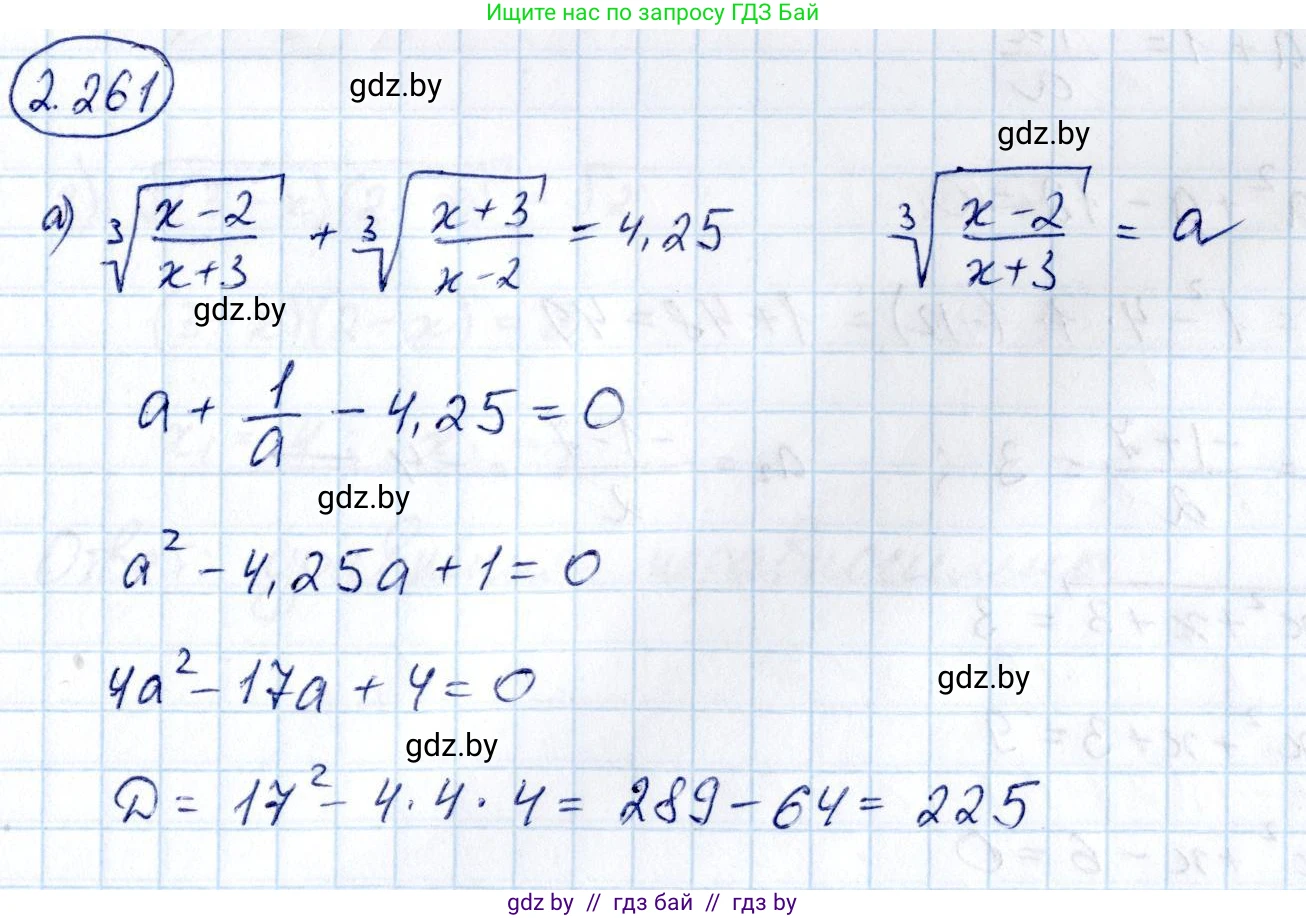 Ищите нас по запросу ГДЗ Бай
2.261
gdz.by
gdz.by
а) ∛((x-2)/(x+3)) + ∛((x+3)/(x-2)) = 4,25    ∛((x-2)/(x+3)) = a
gdz.by
a + 1/a - 4,25 = 0
gdz.by
a² - 4,25a + 1 = 0
4a² - 17a + 4 = 0
gdz.by
gdz.by
D = 17² - 4·4·4 = 289 - 64 = 225
gdz by // гдз бай // gdz by